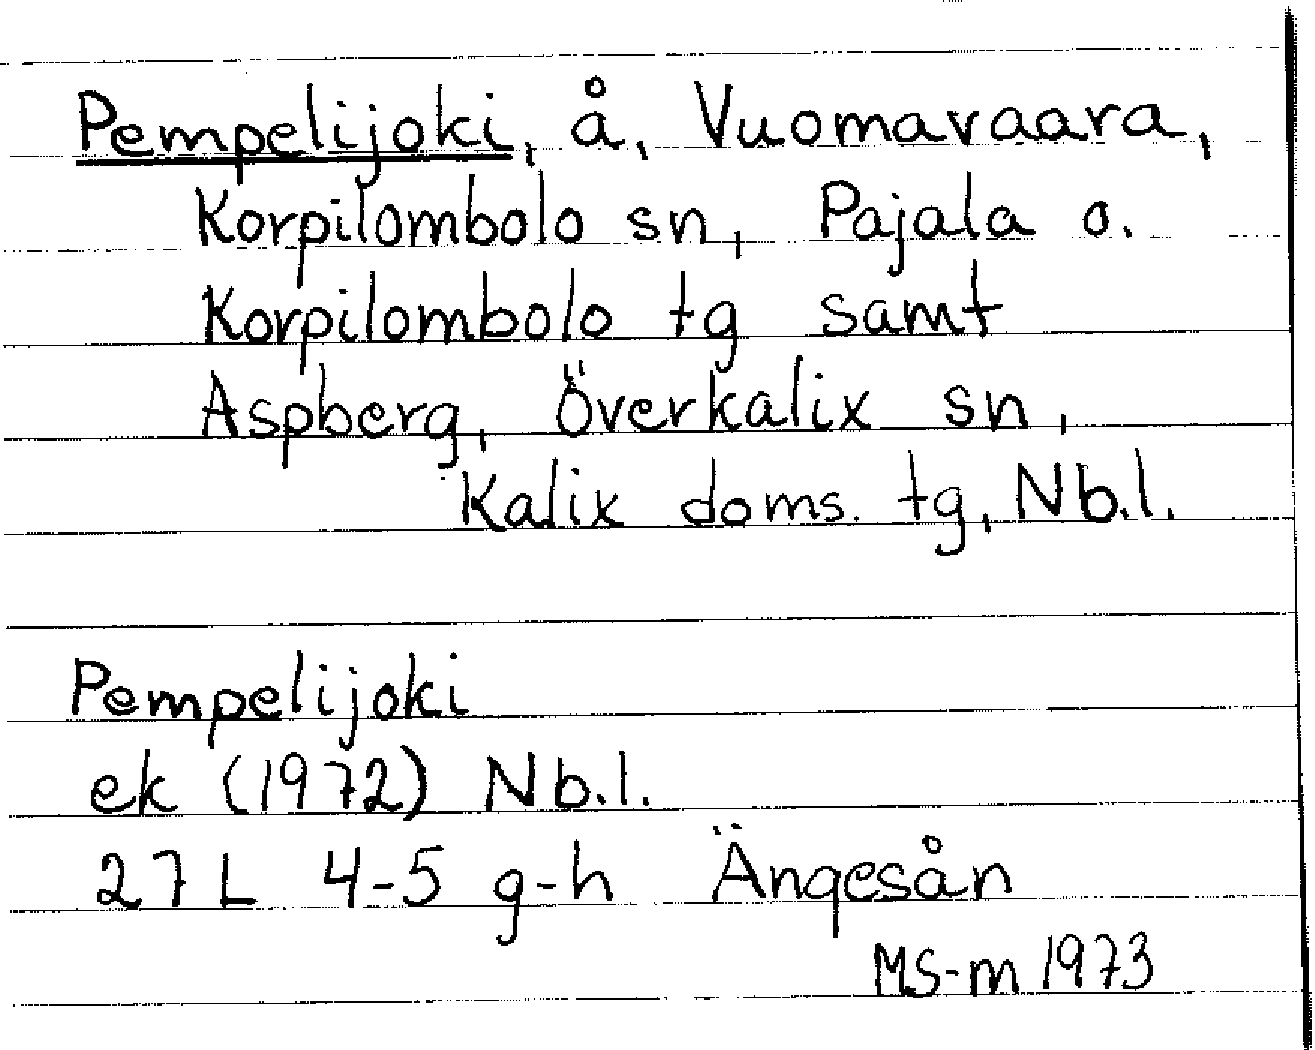 Pempelijoki, å, Vuomavaara,
Korpilombolo sn, Pajala o.
Korpilombolo tg samt
Aspberg, Överkalix sn,
Kalix doms. tg, Nb.l.
Pempelijoki
ek (1972) Nb.l.
27 L 4-5 g-h Ängesån
MS-m 1973